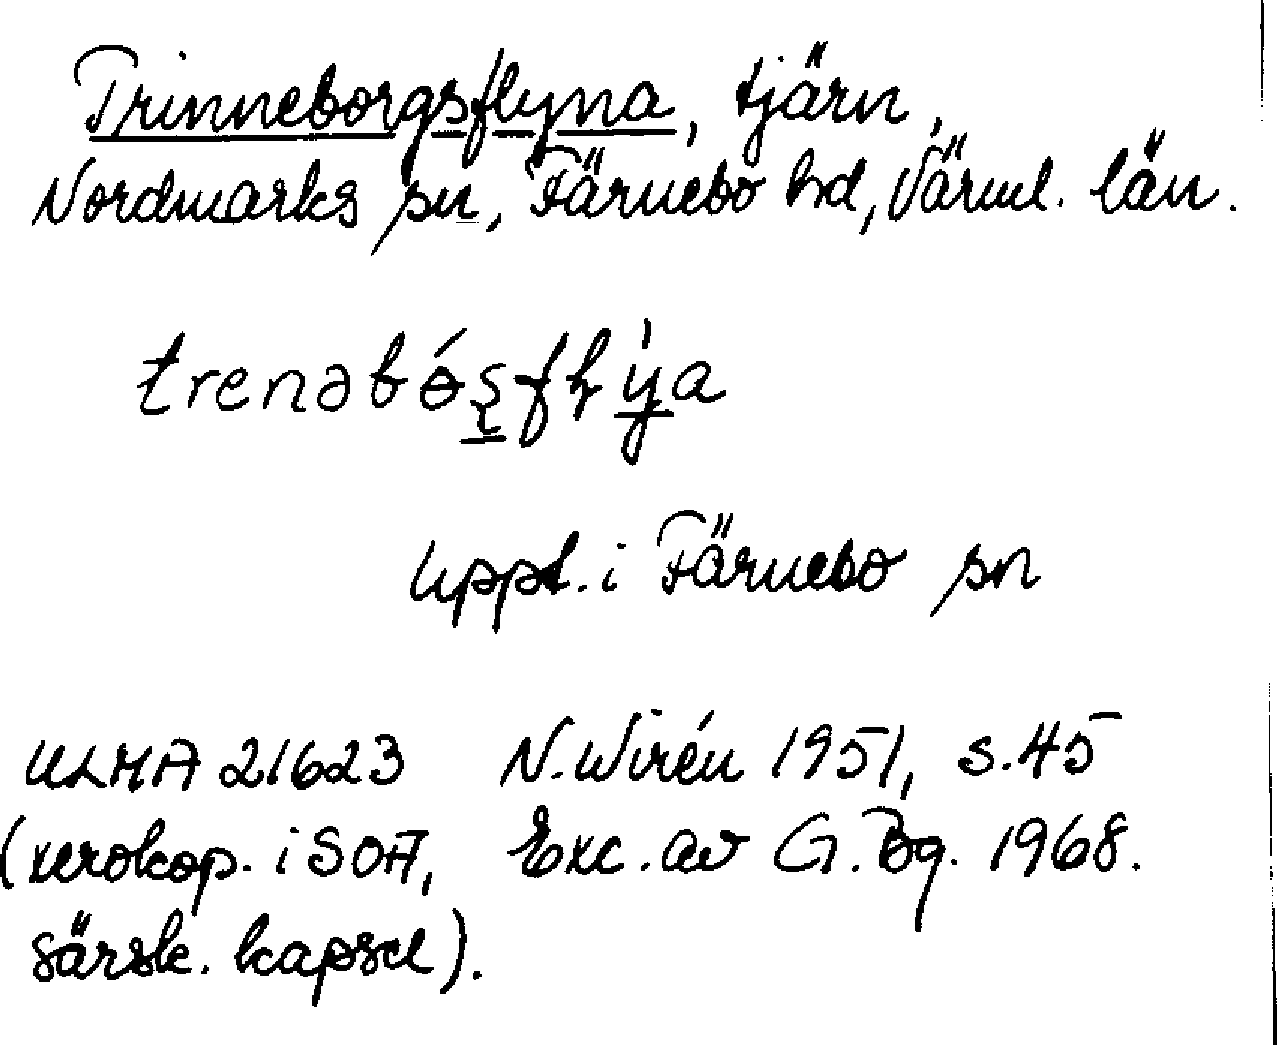 Trinneborgsflyna, tjärn,
Nordmarks sn, Färnebo hd, Värml. län.
uppt. i Färnebo sn
ULMA 21623 N. Wirén 1951, s. 45
(xerokop. i SOA, Exc. av G. Bg. 1968.
särsk. kapsel).